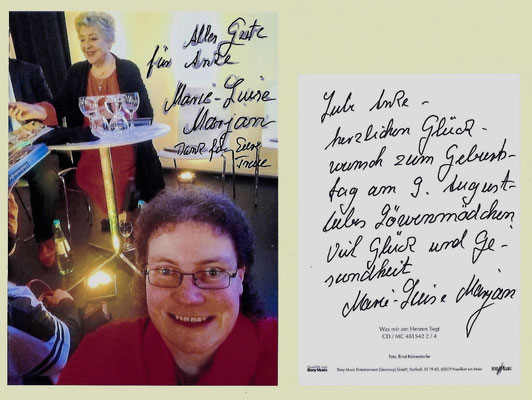 Alles Gute
für Anke
Marie-Luise
Marjan
Dank für Deine
Treue
Liebe Anke -
herzlichen Glück-
wunsch zum Geburts-
tag am 9. August -
liebes Löwenmädchen
Viel Glück und Ge-
sundheit
Marie-Luise Marjan
Was mir am Herzen liegt
CD / MC 481542 2 / 4
Sony Music Entertainment (Germany) GmbH
Frankfurt am Main